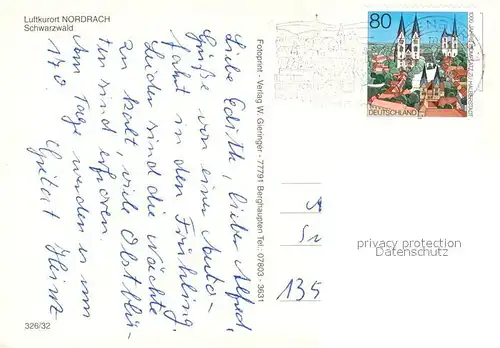 Luftkurort NORDRACH
Schwarzwald
Liebe Edith, lieber Alfred,
Grüße von einer Auto-
fahrt in den Frühling.
Leider sind die Nächte
zu kalt, viele Obstblü-
ten sind erfroren.
Am Tage werden es um
17°.
Heinz
326/32
Fotoprint - Verlag W. Gieringer - 77791 Berghaupten Tel.: 07803 - 3631
80
DEUTSCHLAND
135
privacy protection
Datenschutz